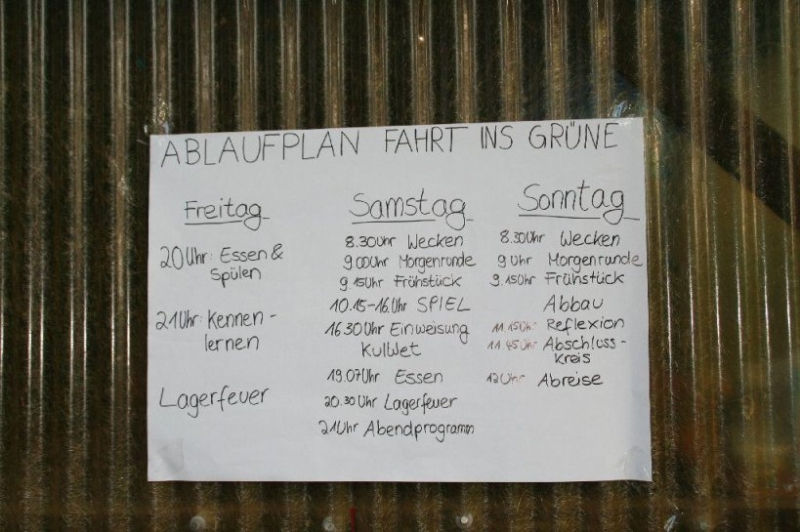 ABLAUFPLAN FAHRT INS GRÜNE
Freitag
20 Uhr: Essen &
Spülen
21 Uhr: Kennen-
lernen
Lagerfeuer
Samstag
8.30 Uhr Wecken
9 00 Uhr Morgenrunde
9.15 Uhr Frühstück
10.15-16. Uhr SPIEL
16 30 Uhr Einweisung
KulWet
19.07 Uhr Essen
20.30 Uhr Lagerfeuer
21 Uhr Abendprogramm
Sonntag
8.30 Uhr Wecken
9 Uhr Morgenrunde
9.15 Uhr Frühstück
Abbau
11.15 Uhr Reflexion
11.45 Uhr Abschluss-
kreis
12 Uhr Abreise